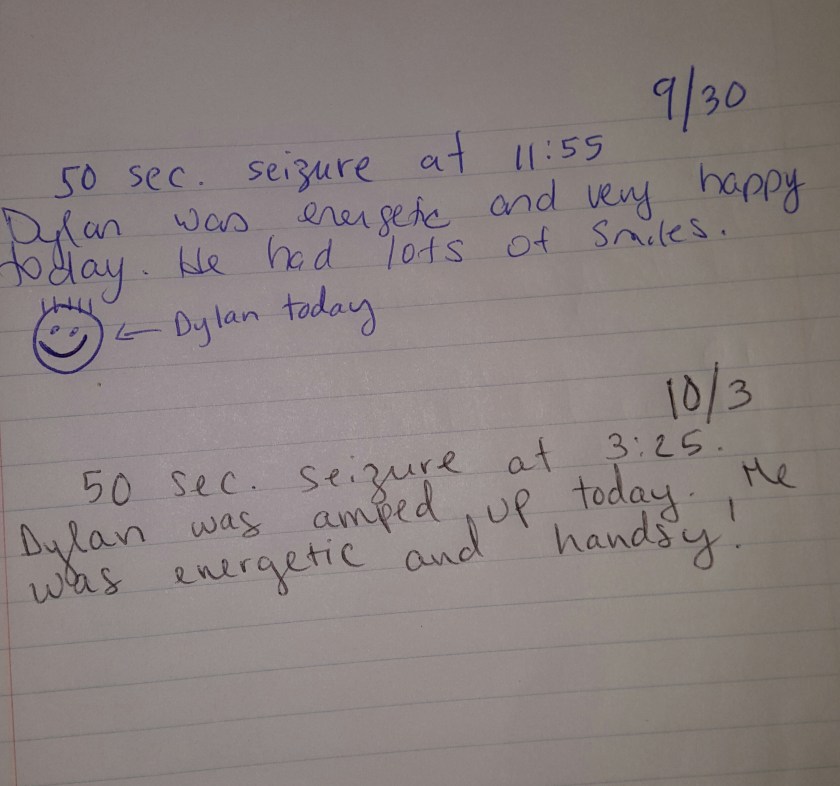 9/30
50 sec. seizure at 11:55
Dylan was energetic and very happy
today. He had lots of smiles.
← Dylan today
10/3
50 sec. seizure at 3:25.
Dylan was amped up today. He
was energetic and handsy!